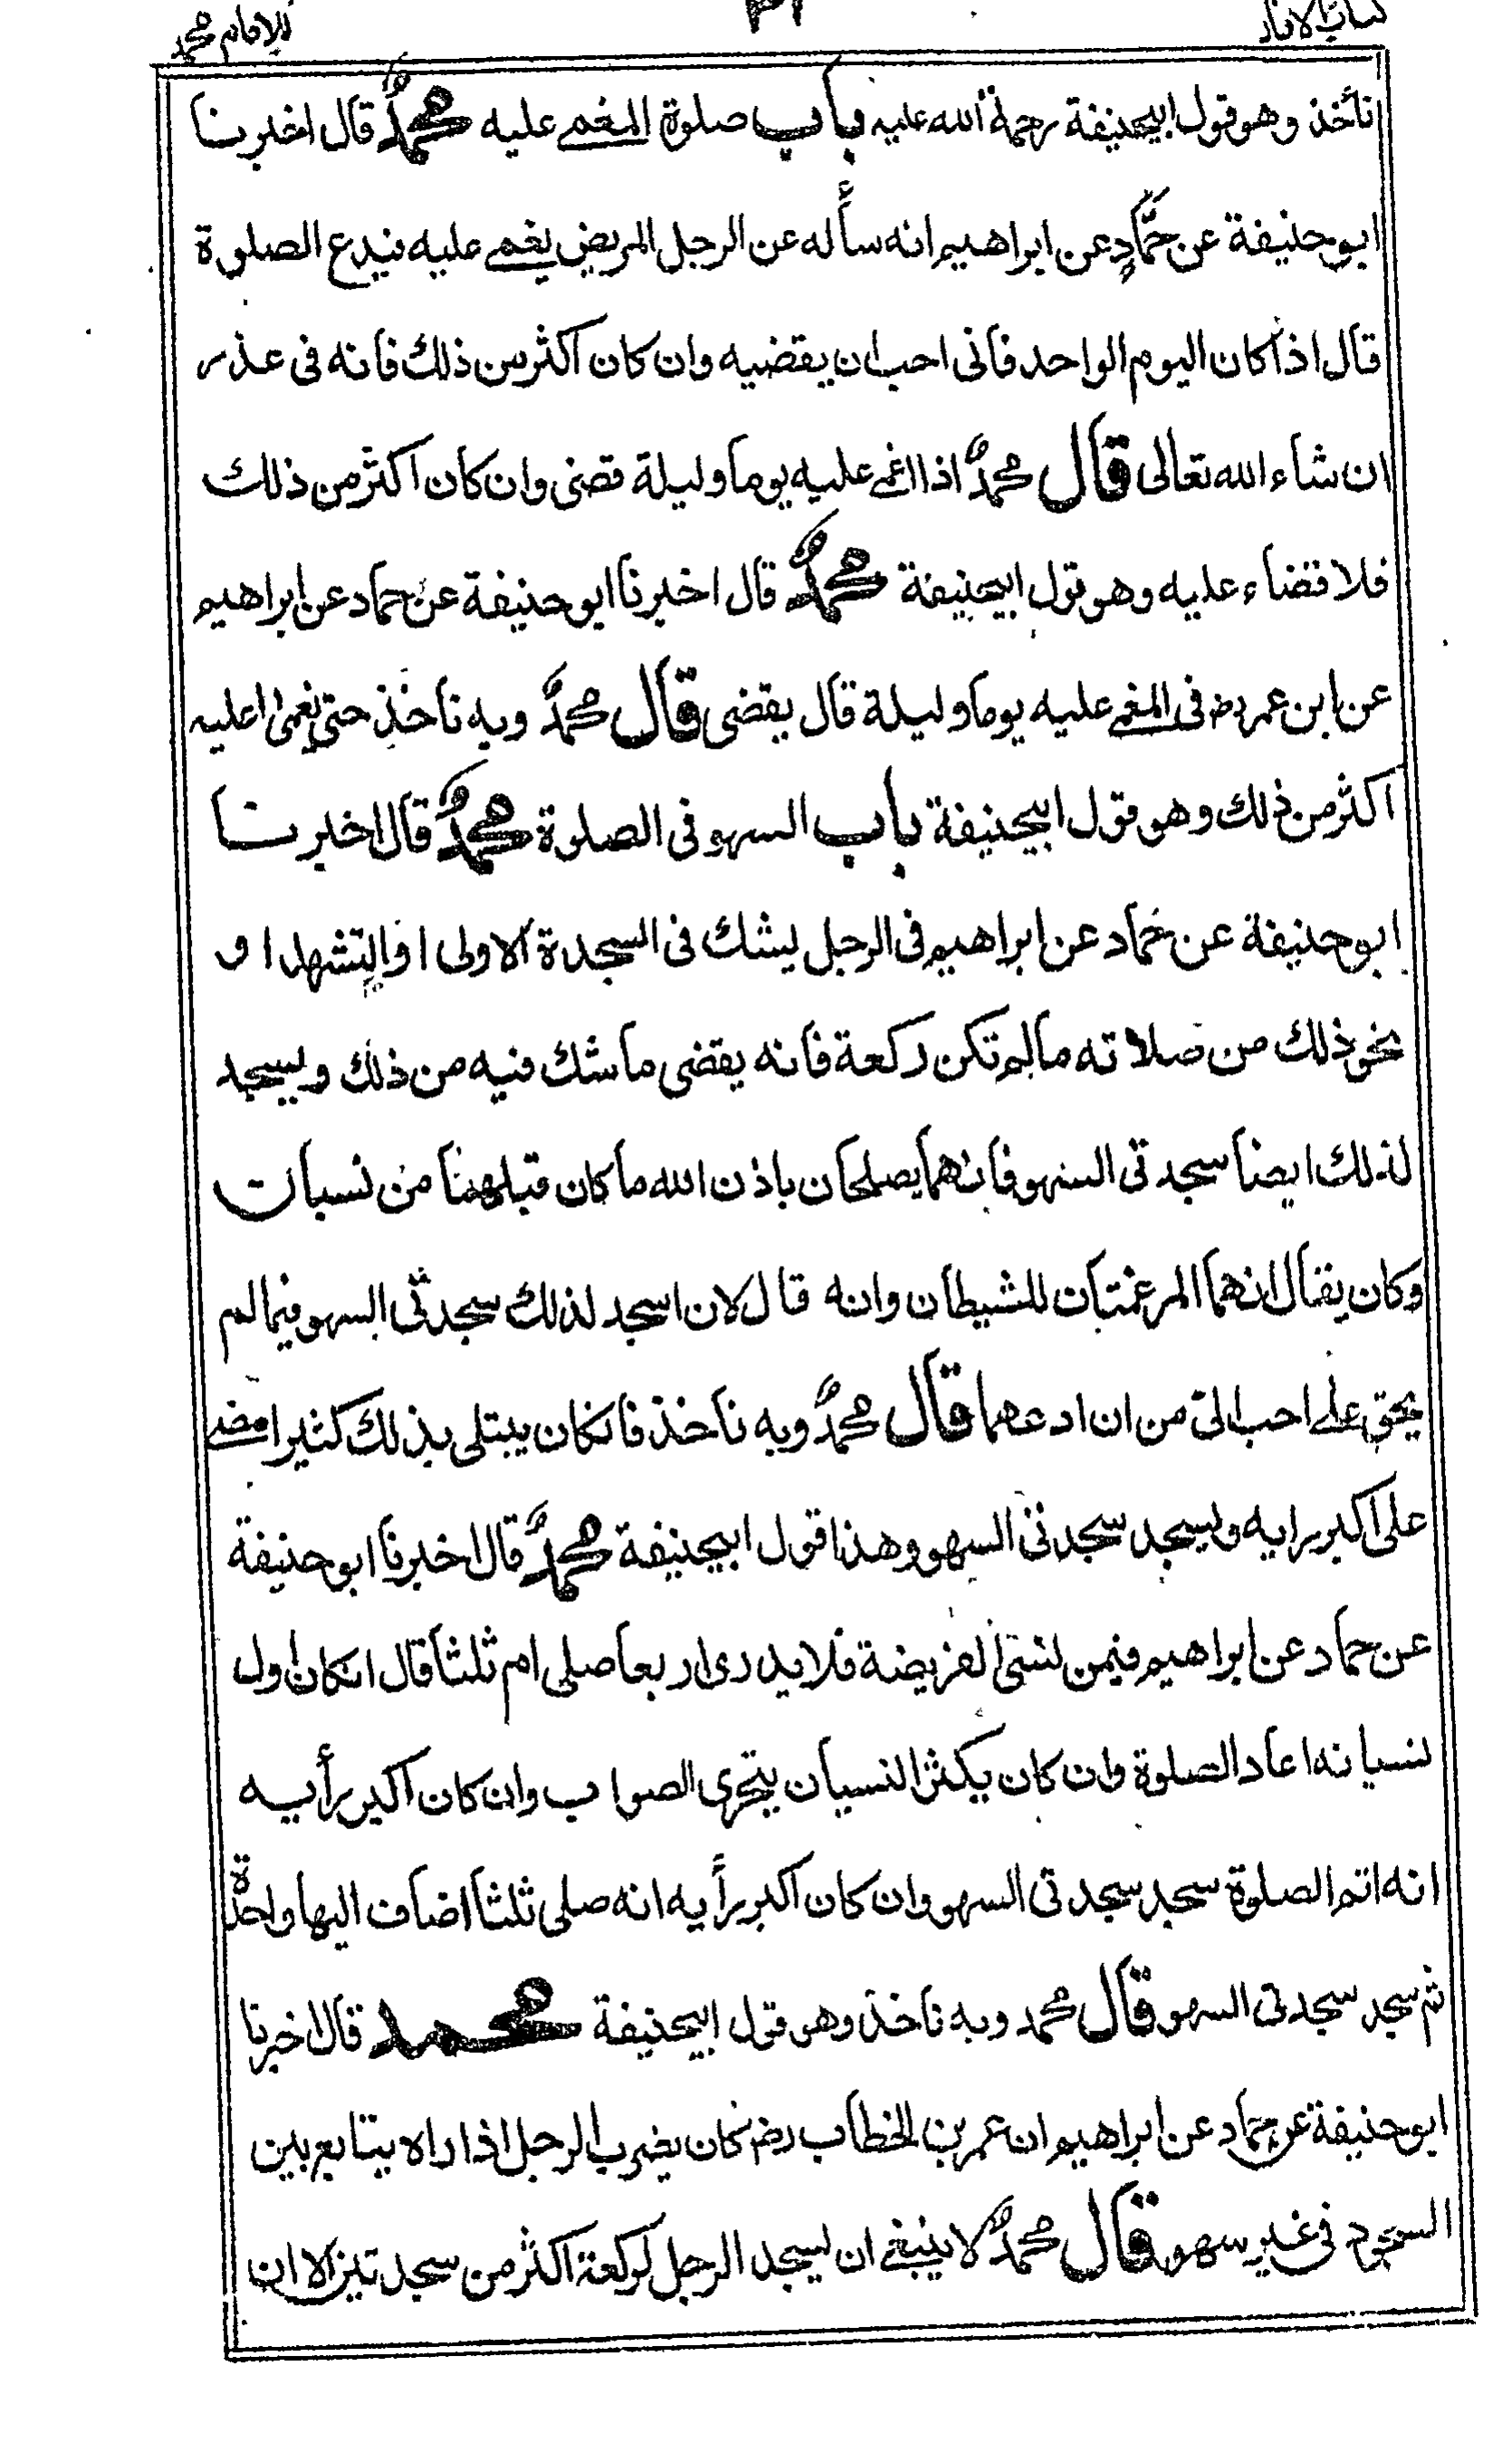 كتاب الآثار
للإمام محمد
نأخذ وهو قول ابيحنيفة رحمة الله عليه باب صلوة المغمى عليه محمدٌ قال اخبرنا
ابو حنيفة عن حمّادٍ عن ابراهيم انه سأله عن الرجل المريض يغمى عليه فيدع الصلوة
قال اذا كان اليوم الواحد فانى احب ان يقضيه وان كان اكثر من ذلك فانه فى عذر
ان شاء الله تعالى قال محمدٌ اذا اغمى عليه يوما وليلة قضى وان كان اكثر من ذلك
فلا قضاء عليه وهو قول ابيحنيفة محمدٌ قال اخبرنا ابو حنيفة عن حماد عن ابراهيم
عن ابن عمر رض فى المغمى عليه يوما وليلة قال يقضى قال محمدٌ وبه ناخذ حتى يغمى عليه
اكثر من ذلك وهو قول ابيحنيفة باب السهو فى الصلوة محمدٌ قال اخبرنا
ابو حنيفة عن حماد عن ابراهيم فى الرجل يشك فى السجدة الاولى او التشهد او
نحو ذلك من صلاته ما لم تكن ركعة فانه يقضى ما شك فيه من ذلك ويسجد
لذلك ايضا سجدتى السهو فانهما يصلحان باذن الله ما كان قبلهما من نسيان
وكان يقال انهما المرغمتان للشيطان وانه قال لان اسجد لذلك سجدتى السهو فيما لم
يحق على احب الىّ من ان ادعهما قال محمدٌ وبه ناخذ فان كان يبتلى بذلك كثيرا مضى
على اكبر رايه ويسجد سجدتى السهو وهذا قول ابيحنيفة محمدٌ قال اخبرنا ابو حنيفة
عن حماد عن ابراهيم فيمن نسى الفريضة فلا يدرى اربعا صلى ام ثلثا قال ان كان اول
نسيانه اعاد الصلوة وان كان يكثر النسيان يتحرى الصواب وان كان اكبر رأيه
انه اتم الصلوة سجد سجدتى السهو وان كان اكبر رأيه انه صلى ثلثا اضاف اليها واحدة
ثم سجد سجدتى السهو قال محمد وبه ناخذ وهو قول ابيحنيفة محمد قال اخبرنا
ابو حنيفة عن حماد عن ابراهيم ان عمر بن الخطاب رض كان يضرب الرجل اذا راه يتابع بين
السجود فى غير سهو قال محمدٌ لا ينبغى ان يسجد الرجل لركعة اكثر من سجدتين الا ان